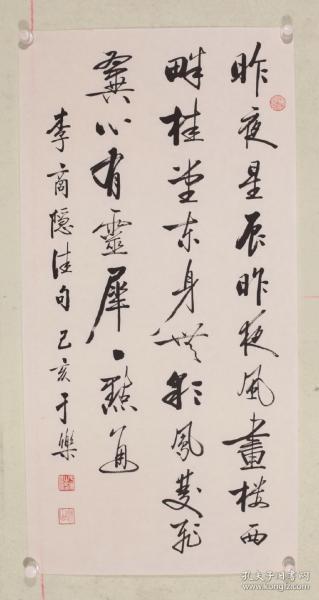 昨夜星辰昨夜風畫楼西
畔桂堂東身無彩鳳雙飛
翼心有靈犀一點通
李商隐佳句己亥于樂
孔夫子旧书网